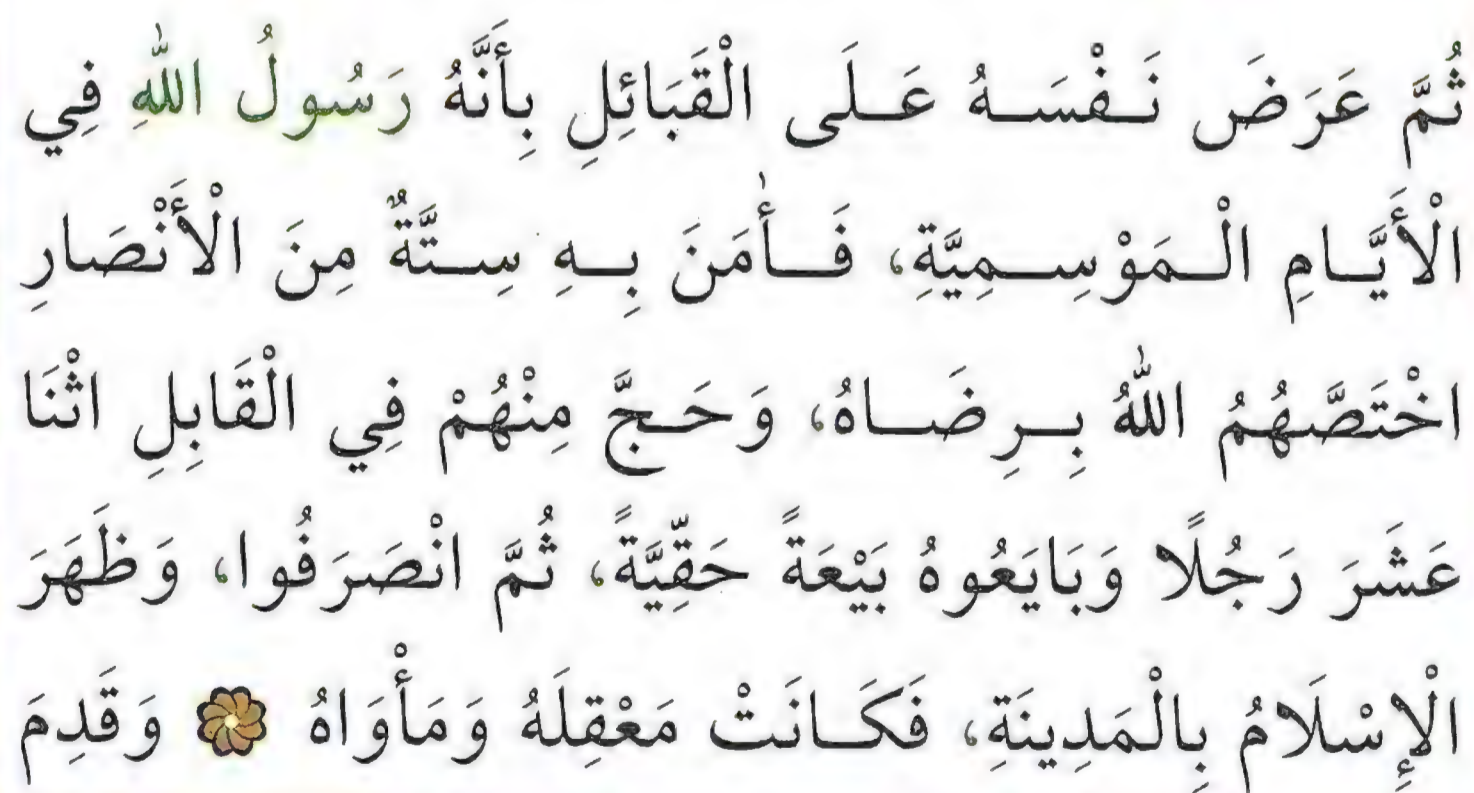 ثُمَّ عَرَضَ نَفْسَهُ عَلَى الْقَبَائِلِ بِأَنَّهُ رَسُولُ اللّٰهِ فِي
الْأَيَّامِ الْمَوْسِمِيَّةِ، فَأٰمَنَ بِهِ سِتَّةٌ مِنَ الْأَنْصَارِ
اخْتَصَّهُمُ اللّٰهُ بِرِضَاهُ، وَحَجَّ مِنْهُمْ فِي الْقَابِلِ اثْنَا
عَشَرَ رَجُلًا وَبَايَعُوهُ بَيْعَةً حَقِّيَّةً، ثُمَّ انْصَرَفُوا، وَظَهَرَ
الْإِسْلَامُ بِالْمَدِينَةِ، فَكَانَتْ مَعْقِلَهُ وَمَأْوَاهُ وَقَدِمَ